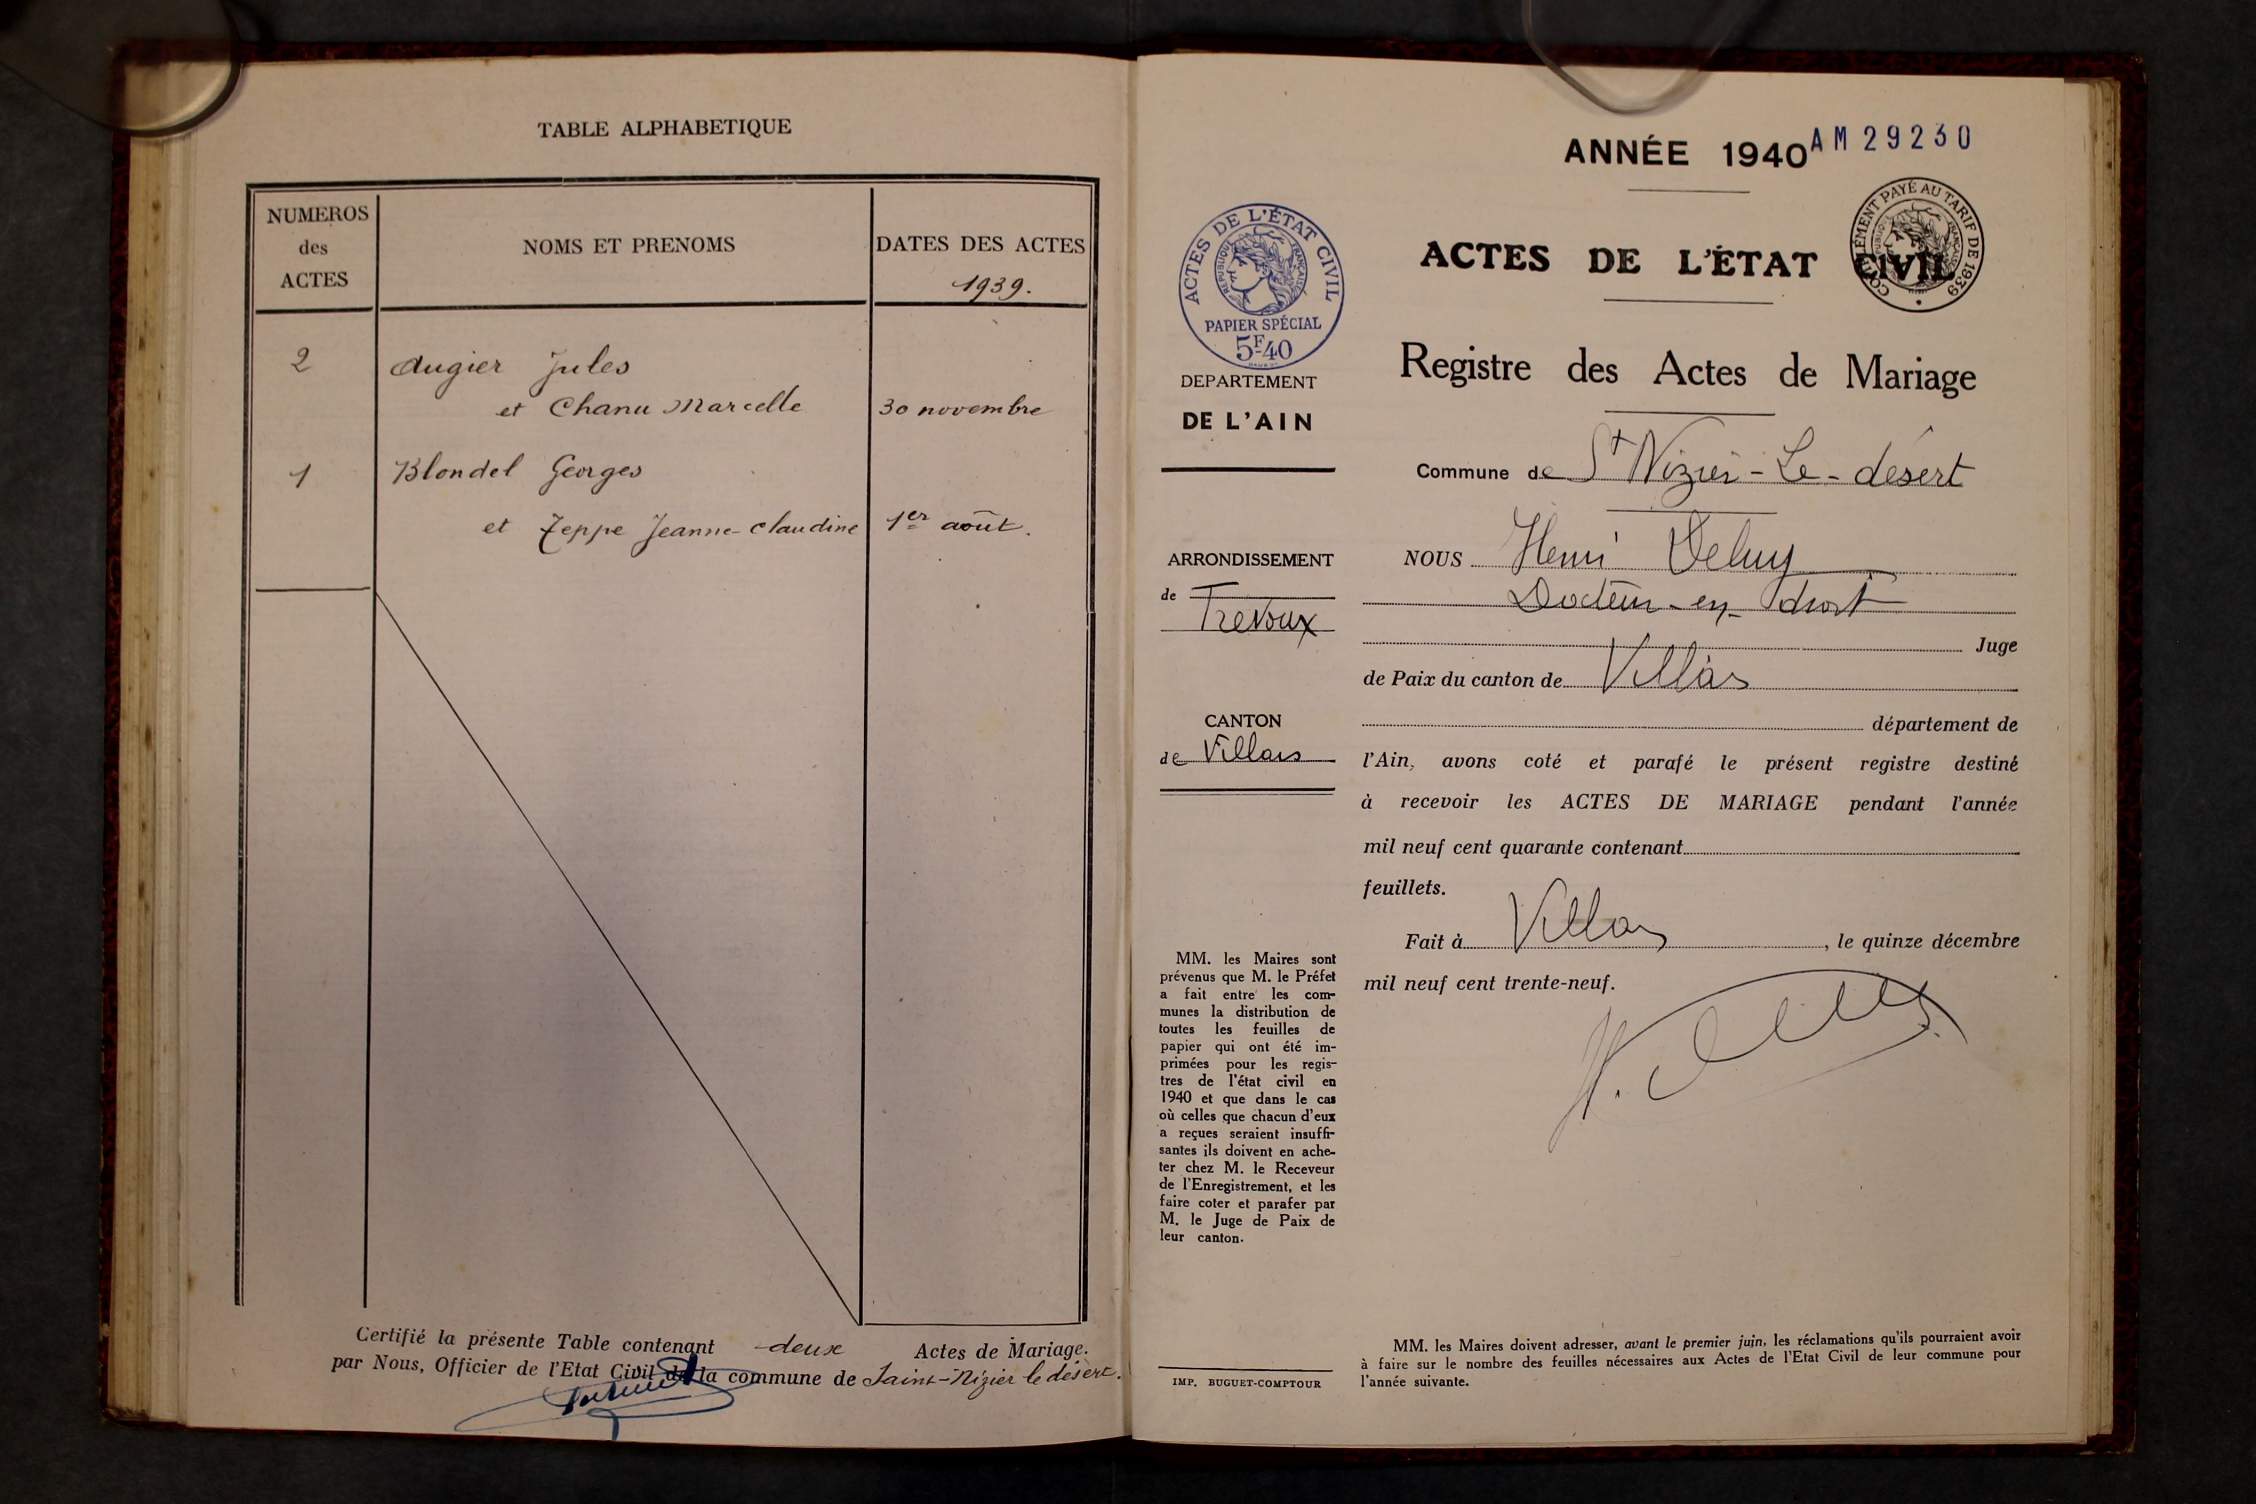 TABLE ALPHABETIQUE
NUMEROS
des
ACTES
NOMS ET PRENOMS
DATES DES ACTES
1939.
2
Augier Jules
et Chanu Marcelle
30 novembre
1
Blondel Georges
et Zeppe Jeanne-Claudine
1er août.
Certifié la présente Table contenant deux Actes de Mariage.
par Nous, Officier de l'Etat Civil de la commune de Saint-Nizier le désert.
ANNÉE 1940
AM 29230
ACTES DE L'ÉTAT CIVIL
RÉPUBLIQUE FRANÇAISE
PAPIER SPÉCIAL
5F40
COMPLÉMENT PAYÉ AU TARIF DE 1939
ACTES DE L'ÉTAT CIVIL
Registre des Actes de Mariage
DEPARTEMENT
DE L'AIN
Commune de St Nizier-Le-désert
ARRONDISSEMENT
de Trévoux
CANTON
de Villars
NOUS Henri Deluy
Docteur-en-droit
Juge
de Paix du canton de Villars
département de
l'Ain, avons coté et parafé le présent registre destiné
à recevoir les ACTES DE MARIAGE pendant l'année
mil neuf cent quarante contenant
feuillets.
Fait à Villars, le quinze décembre
mil neuf cent trente-neuf.
MM. les Maires sont
prévenus que M. le Préfet
a fait entre les com-
munes la distribution de
toutes les feuilles de
papier qui ont été im-
primées pour les regis-
tres de l'état civil en
1940 et que dans le cas
où celles que chacun d'eux
a reçues seraient insuffi-
santes ils doivent en ache-
ter chez M. le Receveur
de l'Enregistrement, et les
faire coter et parafer par
M. le Juge de Paix de
leur canton.
IMP. BUGUET-COMPTOUR
MM. les Maires doivent adresser, avant le premier juin, les réclamations qu'ils pourraient avoir
à faire sur le nombre des feuilles nécessaires aux Actes de l'Etat Civil de leur commune pour
l'année suivante.